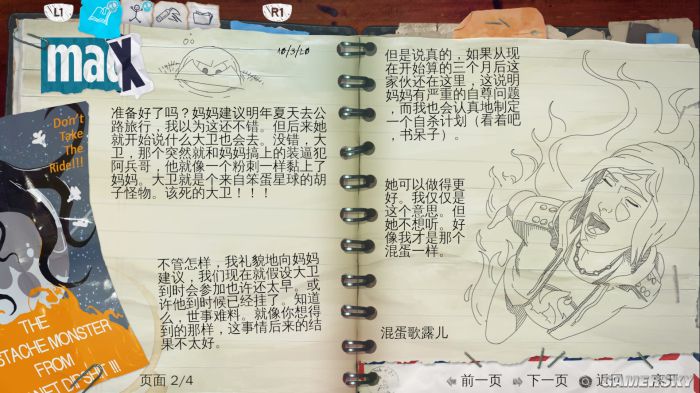 L1
R1
maX
10/3/20
Don't
Take
The
Ride!!!
准备好了吗？妈妈建议明年夏天去公
路旅行，我以为这还不错。但后来她
就开始说什么大卫也会去。没错，大
卫，那个突然就和妈妈搞上的装逼犯
阿兵哥，他就像一个粉刺一样黏上了
妈妈。大卫就是个来自笨蛋星球的胡
子怪物。该死的大卫！！！
不管怎样，我礼貌地向妈妈
建议，我们现在就假设大卫
到时会参加也许还太早。或
许他到时候已经挂了。知道
么，世事难料。就像你想得
到的那样，这事情后来的结
果不太好。
THE
STACHE MONSTER
FROM
NET DIPSHIT !!!
页面 2/4
但是说真的，如果从现
在开始算的三个月后这
家伙还在这里，这说明
妈妈有严重的自尊问题
，而我也会认真地制定
一个自杀计划（看着吧
，书呆子）。
她可以做得更
好。我仅仅是
这个意思。但
她不想听。好
像我才是那个
混蛋一样。
混蛋歌露儿
前一页
下一页
返回
GAMERSKY